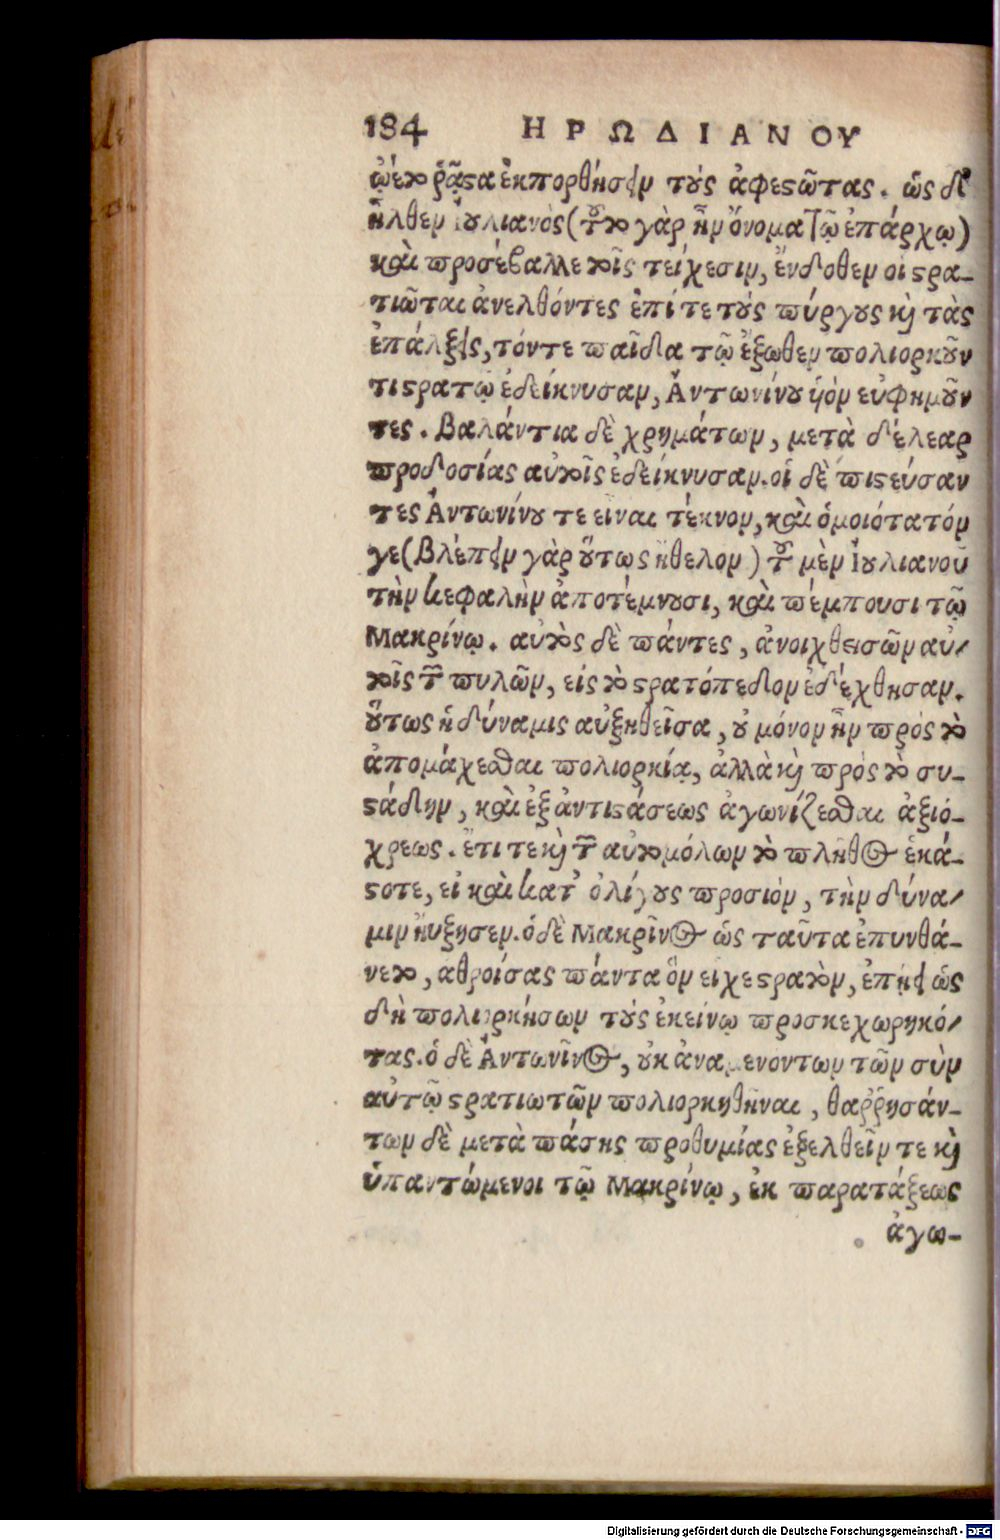 184 ΗΡΩΔΙΑΝΟΥ
ᾤετο ῥᾷστα ἐκπορθήσειν τοὺς ἀφεστῶτας. ὡς δὲ
ἦλθεν Ἰουλιανὸς (τοῦτο γὰρ ἦν ὄνομα τῷ ἐπάρχῳ)
καὶ προσέβαλλε τοῖς τείχεσιν, ἔνδοθεν οἱ στρα-
τιῶται ἀνελθόντες ἐπί τε τοὺς πύργους καὶ τὰς
ἐπάλξεις, τόν τε παῖδα τῷ ἔξωθεν πολιορκοῦν
τι στρατῷ ἐδείκνυσαν, Ἀντωνίνου υἱὸν εὐφημοῦν
τες. βαλάντια δὲ χρημάτων, μετὰ δέλεαρ
προδοσίας αὐτοῖς ἐδείκνυσαν. οἱ δὲ πιστεύσαν
τες Ἀντωνίνου τε εἶναι τέκνον, καὶ ὁμοιότατόν
γε (βλέπειν γὰρ οὕτως ἤθελον) τοῦ μὲν Ἰουλιανοῦ
τὴν κεφαλὴν ἀποτέμνουσι, καὶ πέμπουσι τῷ
Μακρίνῳ. αὐτοὶ δὲ πάντες, ἀνοιχθεισῶν αὐ-
τοῖς τῶν πυλῶν, εἰς τὸ στρατόπεδον ἐδέχθησαν.
οὕτως ἡ δύναμις αὐξηθεῖσα, οὐ μόνον ἦν πρὸς τὸ
ἀπομάχεσθαι πολιορκίᾳ, ἀλλὰ καὶ πρὸς τὸ συ-
στάδην, καὶ ἐξ ἀντιστάσεως ἀγωνίζεσθαι ἀξιό-
χρεως. ἔτι τε καὶ τῶν αὐτομόλων τὸ πλῆθος ἑκά-
στοτε, εἰ καὶ κατ' ὀλίγους προσιὸν, τὴν δύνα-
μιν ηὔξησεν. ὁ δὲ Μακρῖνος ὡς ταῦτα ἐπυνθά-
νετο, ἀθροίσας πάντα ὃν εἶχε στρατὸν, ἐπῄει ὡς
δὴ πολιορκήσων τοὺς ἐκείνῳ προσκεχωρηκό-
τας. ὁ δὲ Ἀντωνῖνος, οὐκ ἀναμενόντων τῶν σὺν
αὐτῷ στρατιωτῶν πολιορκηθῆναι, θαῤῥησάν-
των δὲ μετὰ πάσης προθυμίας ἐξελθεῖν τε καὶ
ὑπαντώμενοι τῷ Μακρίνῳ, ἐκ παρατάξεως
ἀγω-
Digitalisierung gefördert durch die Deutsche Forschungsgemeinschaft - DFG